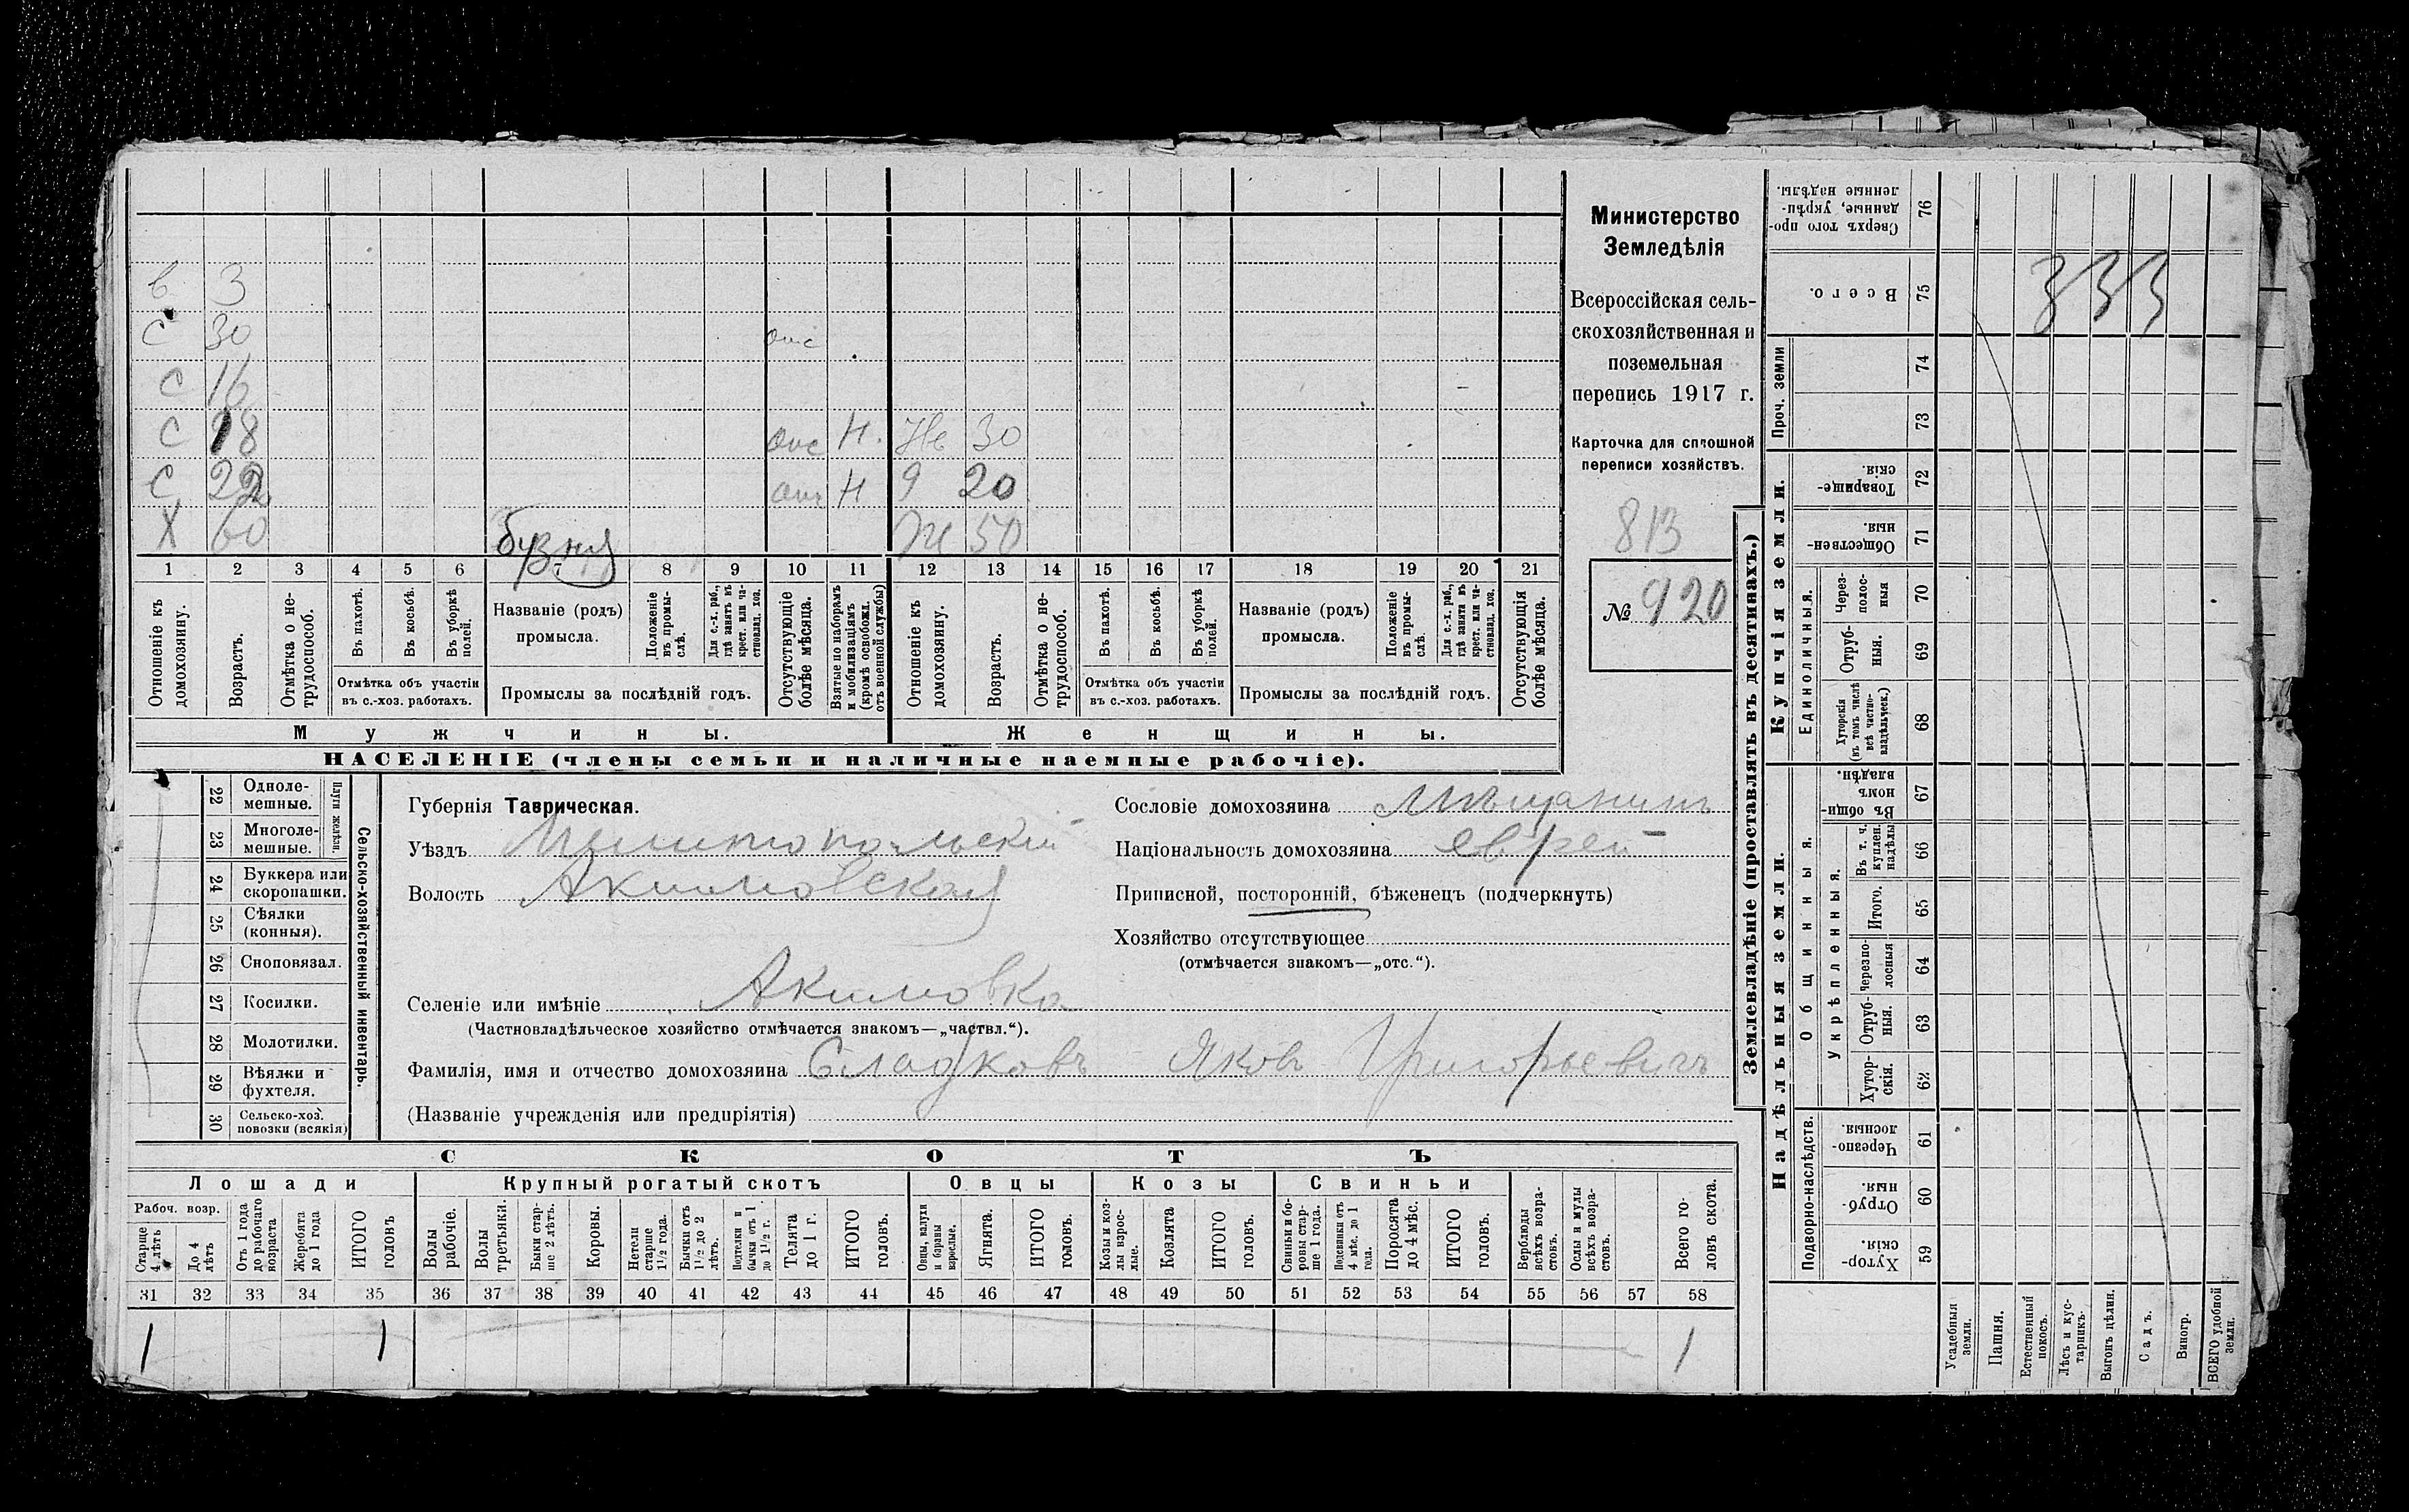 в 3
с 30 отс
с 16
с 18 отс н. Не 30
с 22 отс н 9 20
Х 60 бузня Же 50
1 2 3 4 5 6 7 8 9 10 11 12 13 14 15 16 17 18 19 20 21
Отношеніе къ домохозяину.
Возрастъ.
Отмѣтка о не-трудоспособ.
Въ пахотѣ.
Въ косьбѣ.
Въ уборкѣ полей.
Отмѣтка объ участіи въ с.-хоз. работахъ.
Названіе (родъ) промысла.
Положеніе въ промы-слѣ.
Для с.-х. раб., гдѣ занятъ въ крест. или ча-стновлад. хоз.
Промыслы за послѣдній годъ.
Отсутствующіе болѣе мѣсяца.
Взятые по наборамъ и мобилизаціямъ (кромѣ освобожд. отъ военной службы)
Отношеніе къ домохозяину.
Возрастъ.
Отмѣтка о не-трудоспособ.
Въ пахотѣ.
Въ косьбѣ.
Въ уборкѣ полей.
Отмѣтка объ участіи въ с.-хоз. работахъ.
Названіе (родъ) промысла.
Положеніе въ промы-слѣ.
Для с.-х. раб., гдѣ занята въ крест. или ча-стновлад. хоз.
Промыслы за послѣдній годъ.
Отсутствующія болѣе мѣсяца.
Мужчины.
Женщины.
НАСЕЛЕНІЕ (члены семьи и наличные наемные рабочіе).
Министерство
Земледѣлія
Всероссійская сель-
скохозяйственная и
поземельная
перепись 1917 г.
Карточка для сплошной
переписи хозяйствъ.
813
№ 920
22 Одноле-мешные.
23 Многоле-мешные.
Плуги желѣзн.
24 Буккера или скоропашки.
25 Сѣялки (конныя).
26 Сноповязал.
27 Косилки.
28 Молотилки.
29 Вѣялки и фухтеля.
30 Сельско-хоз. повозки (всякія)
Сельско-хозяйственный инвентарь.
Губернія Таврическая.
Уѣздъ Мелитопольскій
Волость Акимовская
Селеніе или имѣніе Акимовка
(Частновладѣльческое хозяйство отмѣчается знакомъ—„частвл.“).
Фамилія, имя и отчество домохозяина Сладковъ Яковъ Григорьевичъ
(Названіе учрежденія или предпріятія)
Сословіе домохозяина Мѣщанинъ
Національность домохозяина еврей
Приписной, посторонній, бѣженецъ (подчеркнуть)
Хозяйство отсутствующее
(отмѣчается знакомъ—„отс.“).
СКОТЪ
Лошади
Крупный рогатый скотъ
Овцы
Козы
Свиньи
Рабоч. возр.
Старше 4 лѣтъ
До 4 лѣтъ
Отъ 1 года до рабочаго возраста
Жеребята до 1 года
ИТОГО головъ
Волы рабочіе.
Волы третьяки.
Быки стар-ше 2 лѣтъ.
Коровы.
Нетели старше 1½ года.
Бычки отъ 1½ до 2 лѣтъ.
Подтелки и бычки отъ 1 до 1½ г.
Телята до 1 г.
ИТОГО головъ.
Овцы, валухи и бараны взрослые.
Ягнята.
ИТОГО головъ.
Козы и коз-лы взрос-лые.
Козлята
ИТОГО головъ.
Свиньи и бо-ровы стар-ше 1 года.
Подсвинки отъ 4 мѣс. до 1 года.
Поросята до 4 мѣс.
ИТОГО головъ.
Верблюды всѣхъ возра-стовъ.
Ослы и мулы всѣхъ возра-стовъ.
Всего го-ловъ скота.
31 32 33 34 35 36 37 38 39 40 41 42 43 44 45 46 47 48 49 50 51 52 53 54 55 56 57 58
1 1 1
Землевладѣніе (проставлять въ десятинахъ.)
Надѣльныя земли.
Купчія земли.
Проч. земли
Подворно-наслѣдств.
Общинныя.
Укрѣпленныя.
Единоличныя.
76 Сверхъ того про-данные, укрѣп-ленные надѣлы.
75 Всего.
333
74
73
72 Товарище-скія.
71 Обществен-ныя.
70 Через-полос-ныя
69 Отруб-ныя.
68 Хуторскія (въ томъ числѣ всѣ частно-владѣльческ.)
67 Въ общи-номъ владѣн.
66 Въ т. ч. куплен. надѣлы
65 Итого.
64 Черезпо-лосныя
63 Отруб-ныя.
62 Хутор-скія.
61 Черезпо-лосныя.
60 Отруб-ныя.
59 Хутор-скія.
Усадебныя земли.
Пашня.
Естественный покосъ.
Лѣсъ и кус-тарникъ.
Выгонъ цѣлин.
Садъ.
Виногр.
ВСЕГО удобной земли.